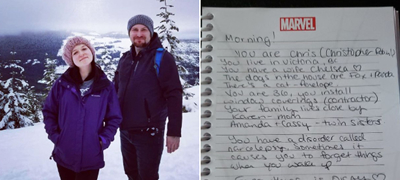 MARVEL
Morning!
You are Chris (Christopher
You live in Victoria, BC
You have a wife Chelsea ♡
The dogs in the house are Fox, Panda
There's a cat - Penelope
You are 36, you install
window coverings (contractor)
Your family lives close by
Karen - mom
Amanda + Cassy - twin sisters
You have a disorder called
narcolepsy. Sometimes it
causes you to forget things
when you wake up